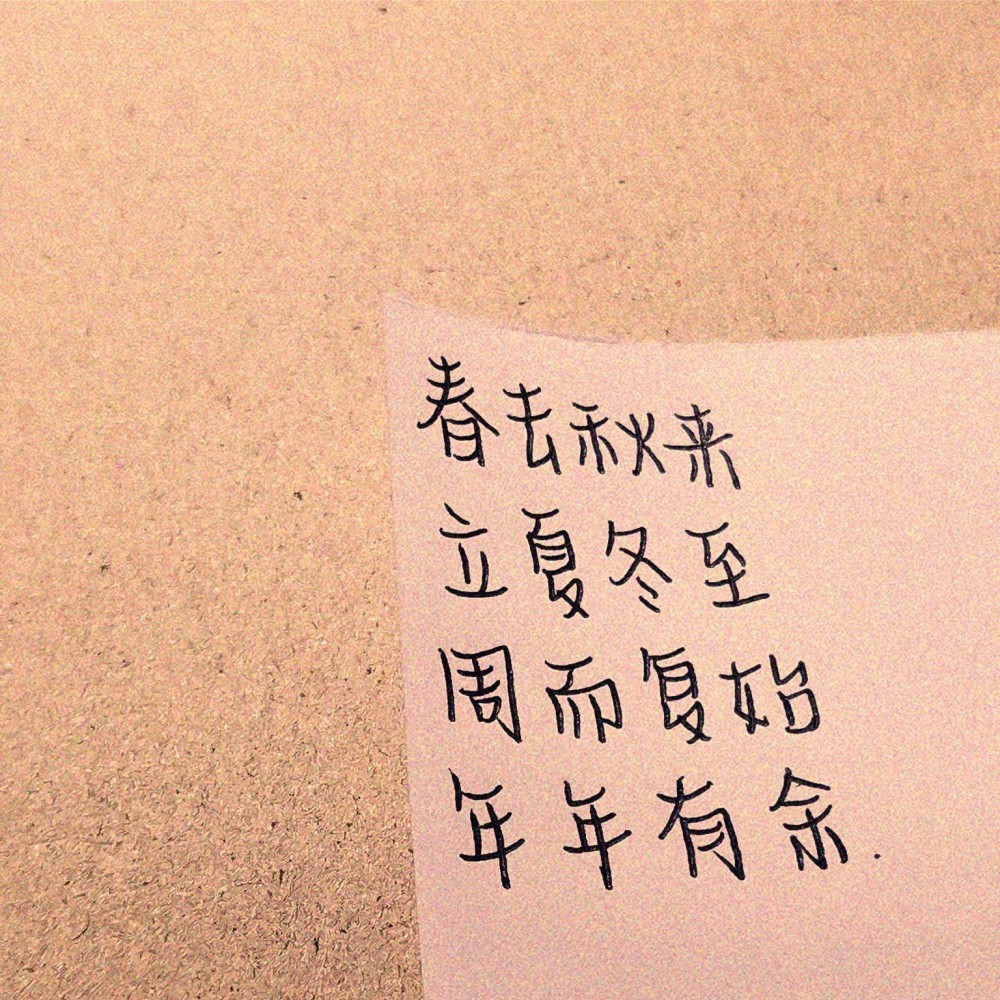 春去秋来
立夏冬至
周而复始
年年有余.